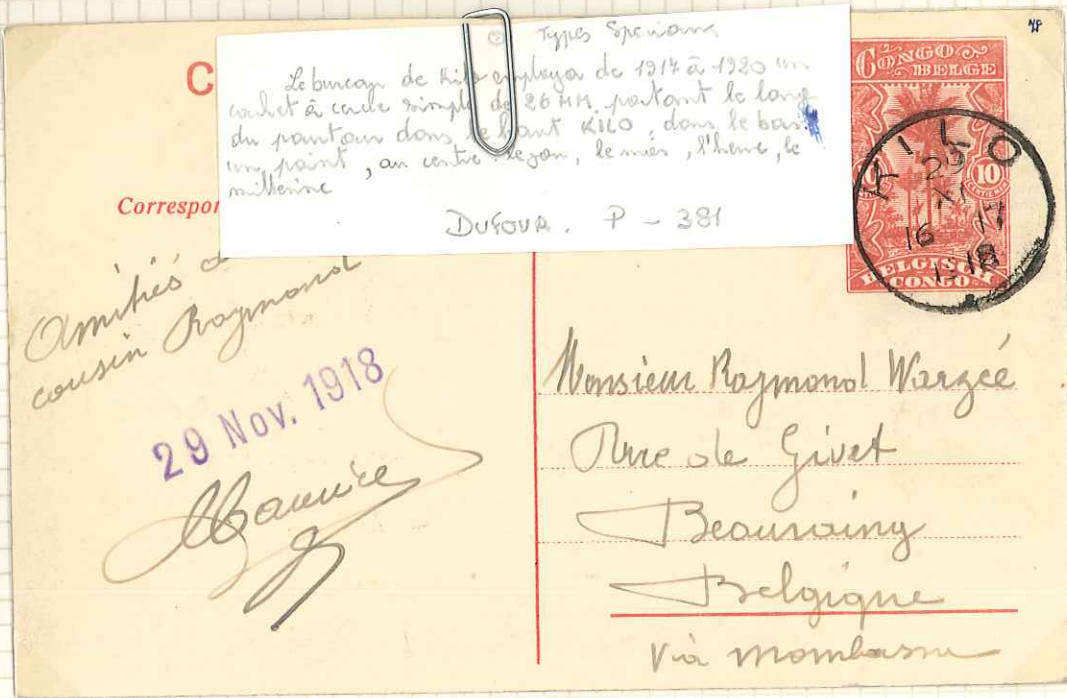 Types Spéciaux
Le bureau de Kilo employa de 1917 à 1920 un
cachet à cercle simple de 26 MM portant le long
du pourtour dans le haut KILO, dans le bas
un point, au centre le jour, le mois, l'heure, le
millésime
DUFOUR. P - 381
C
Correspon
CONGO
BELGE
10
BELGISCH
CONGO
KILO
29
XI
16 17
1918
Amitiés
cousin Raymond
29 Nov. 1918
Maurice
Monsieur Raymond Warzée
Rue de Givet
Beauraing
Belgique
Via Mombassa